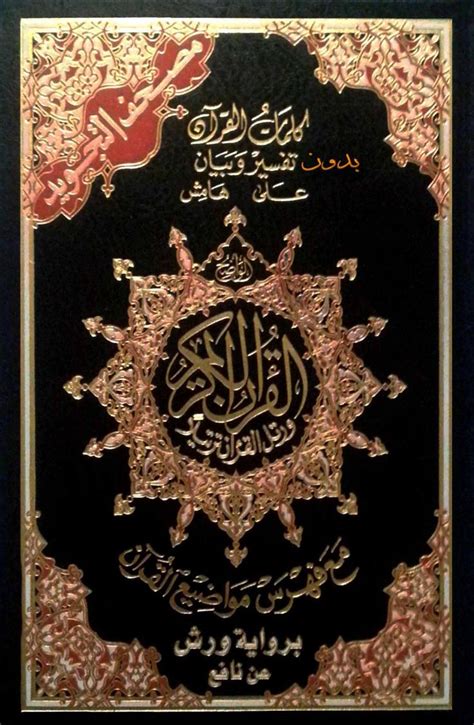 مصحف التجويد
كلمات القرآن
بدون تفسير وبيان
على هامش
القرآن الكريم
ورتل القرآن ترتيلا
مع فهرس مواضيع القرآن
برواية ورش
عن نافع